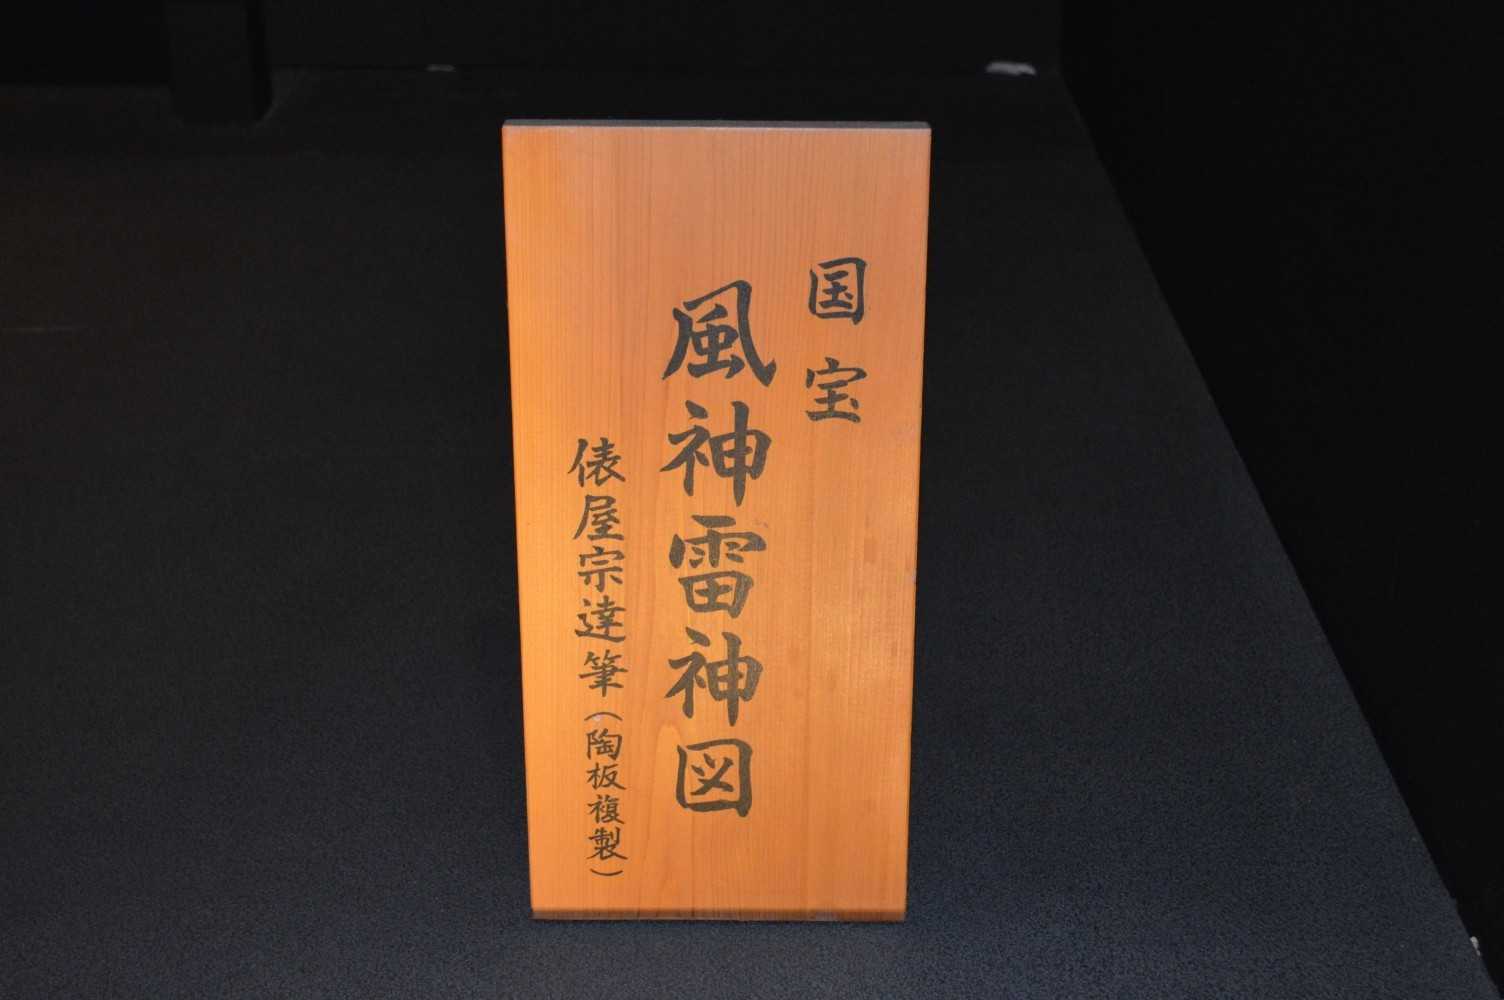 国宝
風神雷神図
俵屋宗達筆（陶板複製）